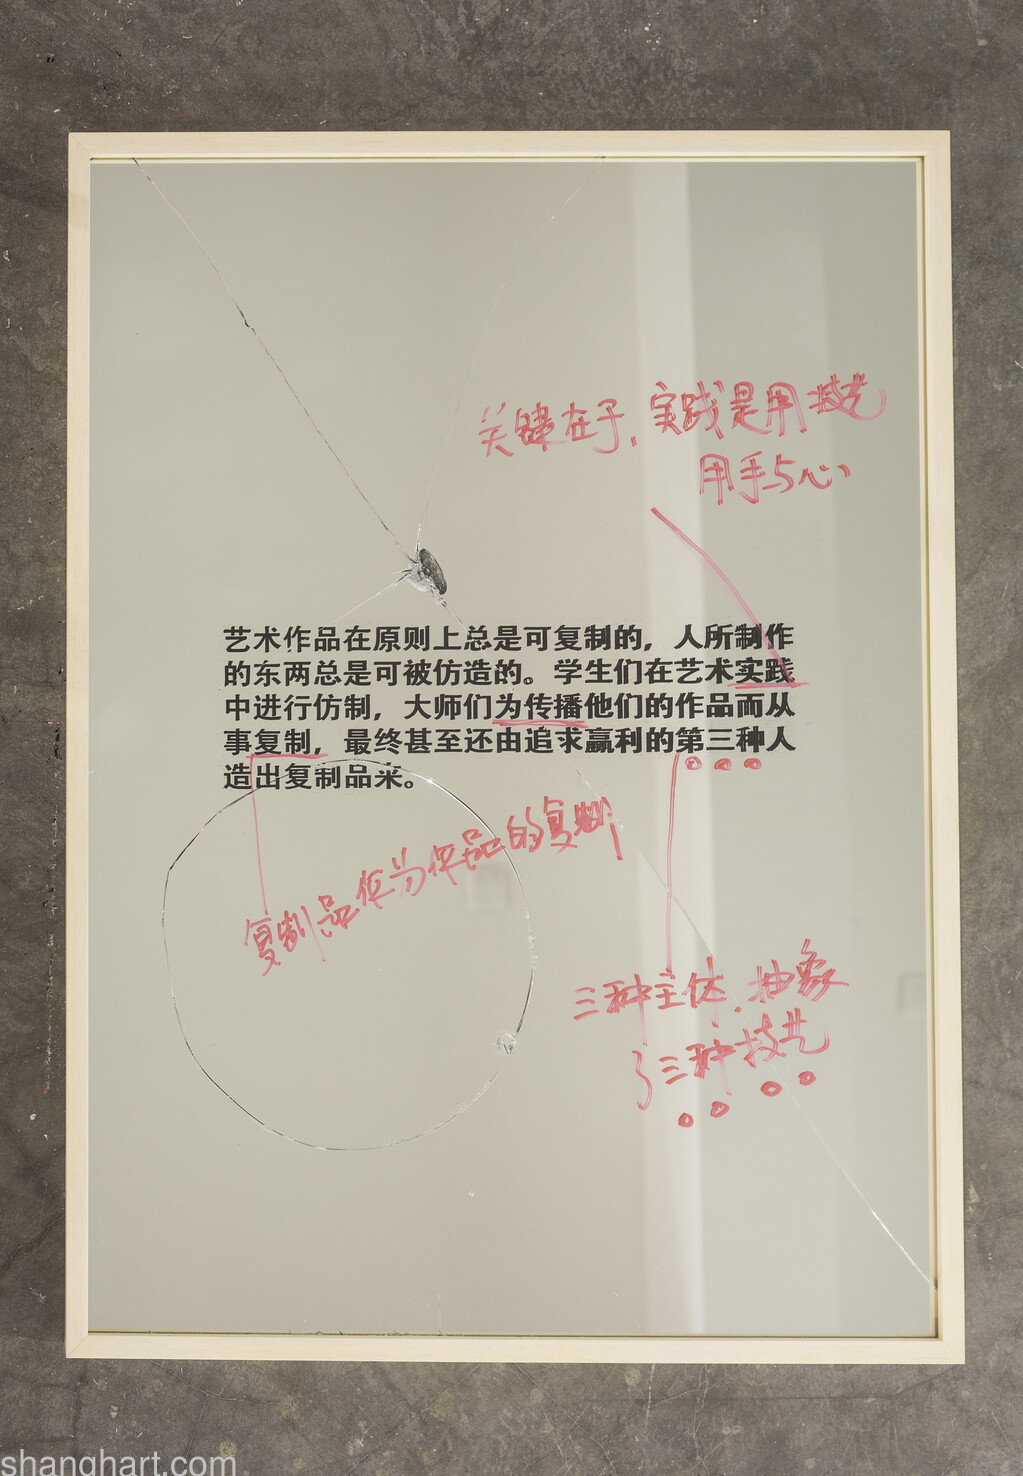 关键在于,实践是用技艺
用手与心
艺术作品在原则上总是可复制的，人所制作
的东两总是可被仿造的。学生们在艺术实践
中进行仿制，大师们为传播他们的作品而从
事复制，最终甚至还由追求赢利的第三种人
造出复制品来。
复制品作为作品的复制
三种主体,抽象
了三种技艺
shanghart.com